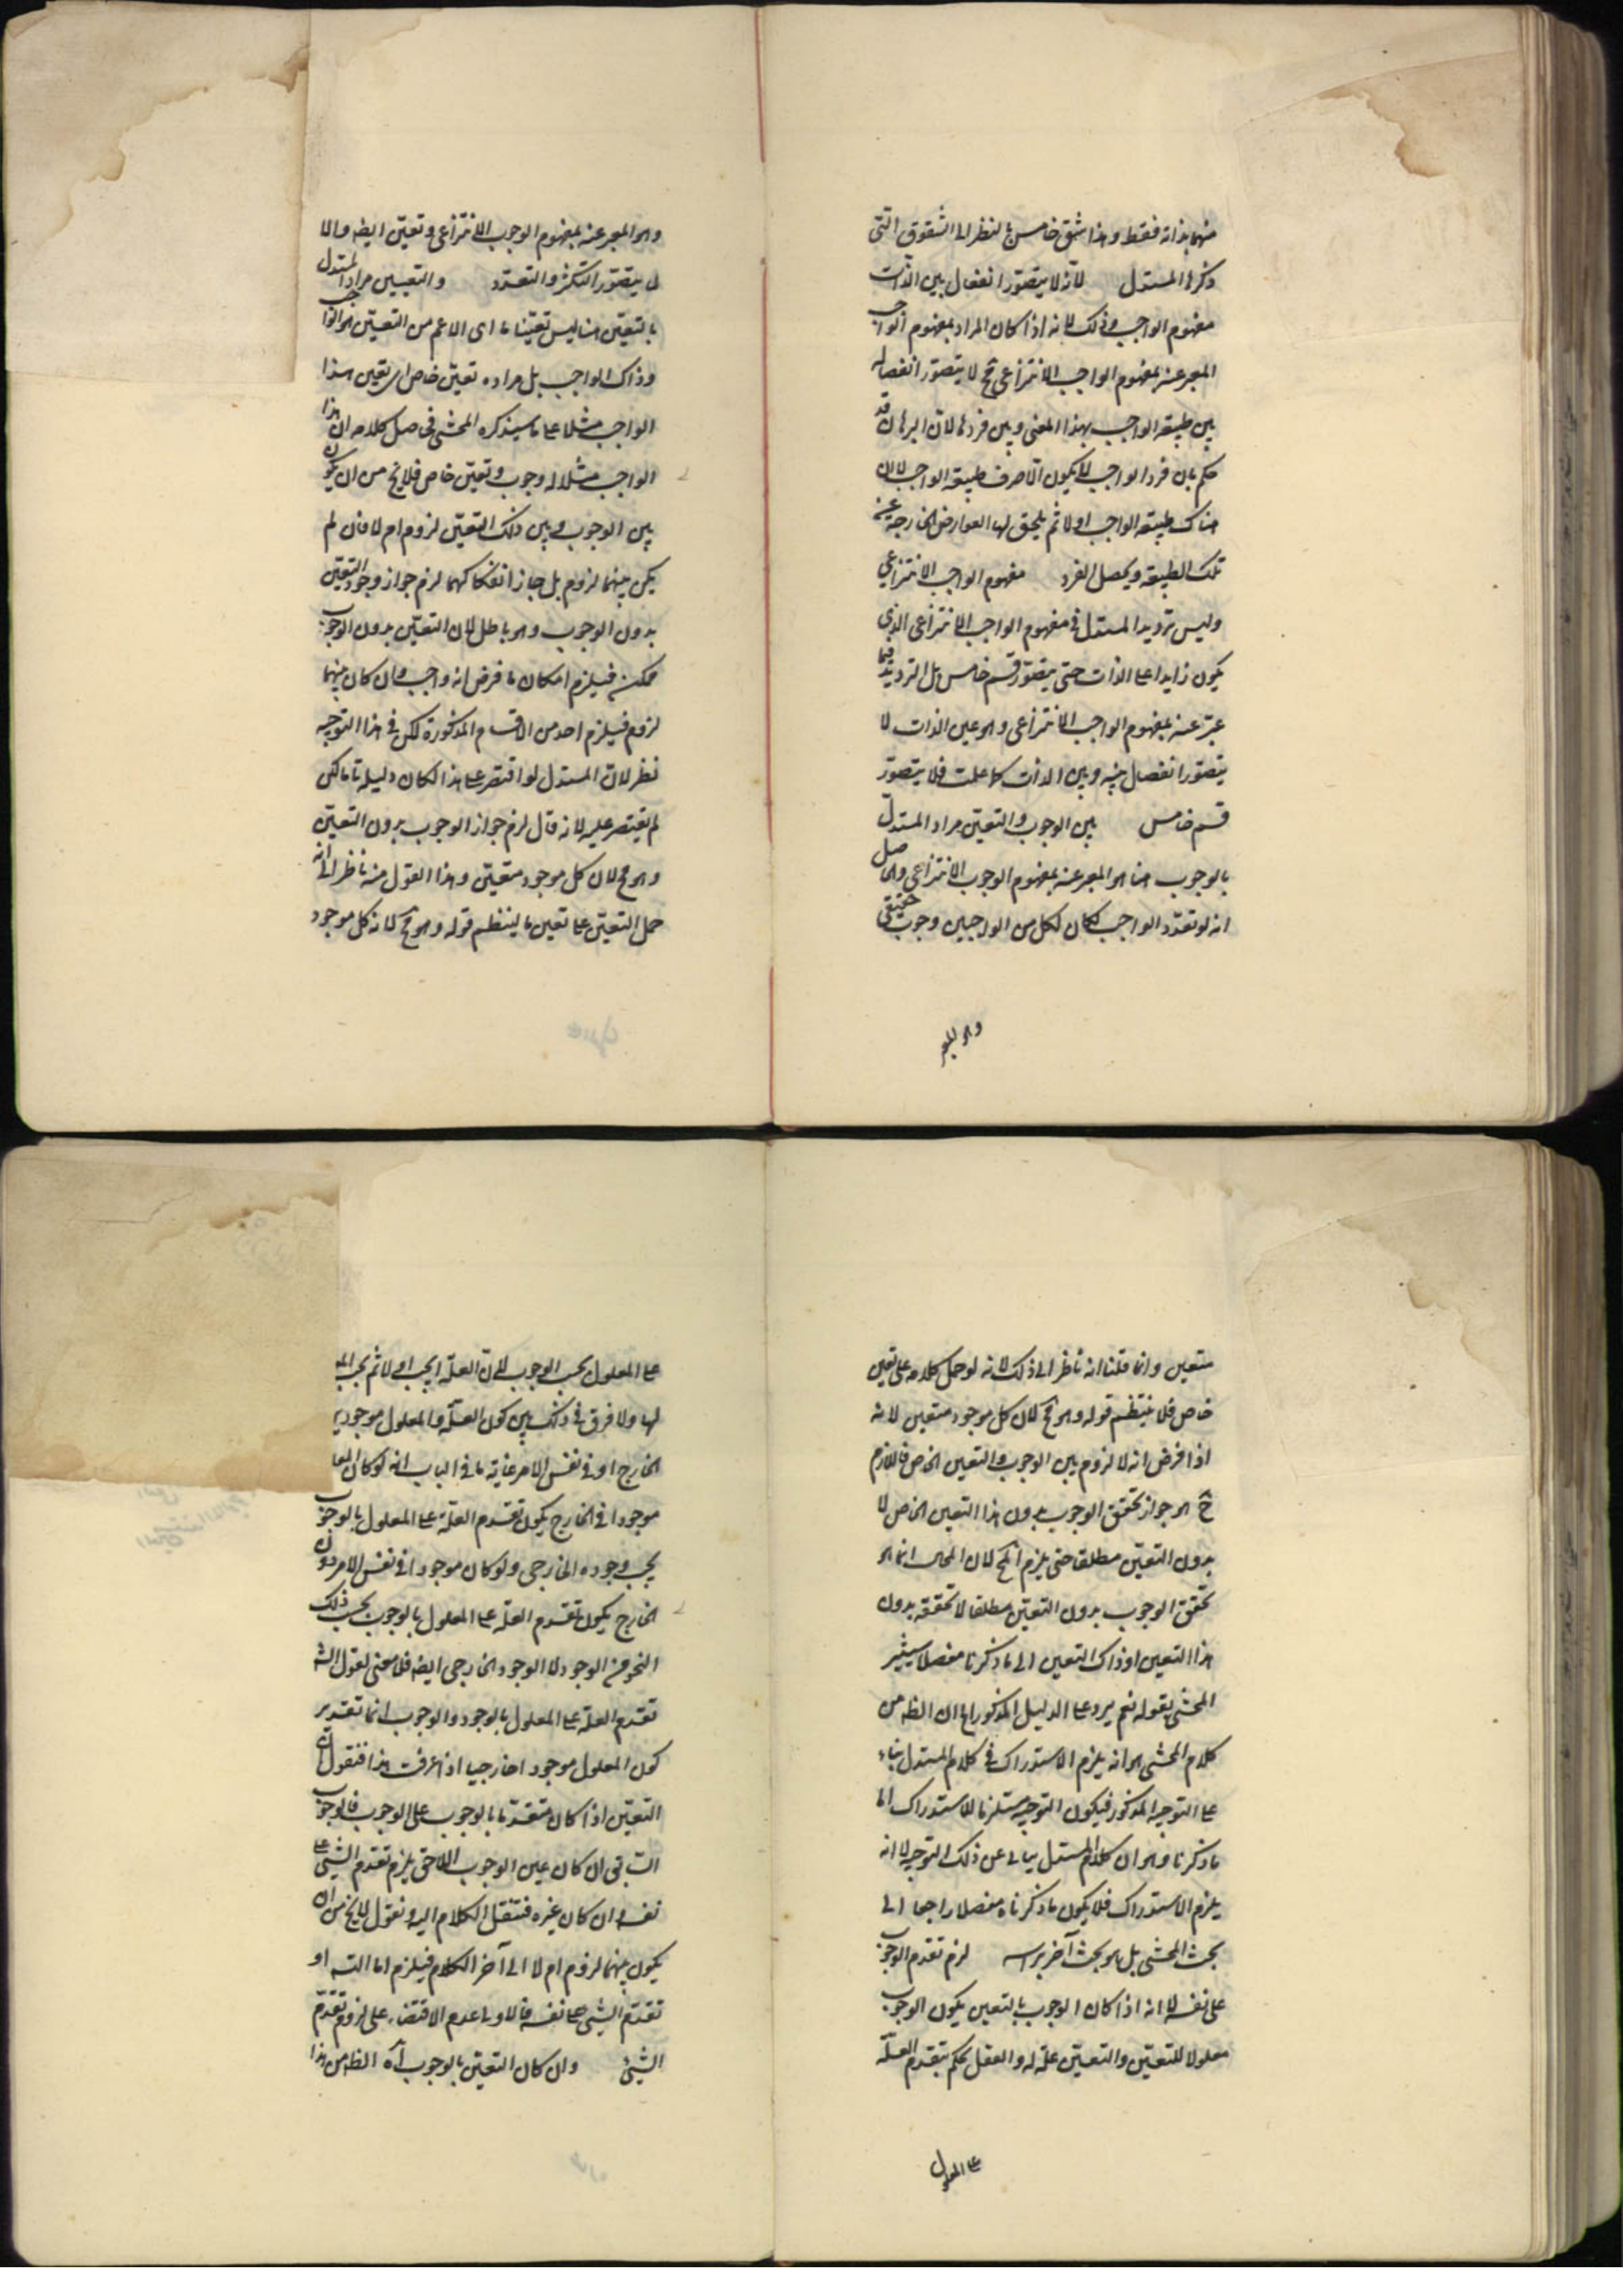 منهما بذاته فقط وهذا شق خامس بالنظر الى الشقوق التى
ذكرها المستدل لانه لا يتصور انفصال بين الذات
مفهوم الواجب وذلك لانه اذا كان المراد بمفهوم الواجب
المعبر عنه بمفهوم الواجب الانتزاعى فح لا يتصور انفصاله
بين طبيعة الواجب بهذا المعنى وبين فردها لان البرهان قد
حكم بان فرد الواجب لا يكون الا صرف طبيعة الواجب لا ان
هناك طبيعة الواجب اولا ثم يلحق لها العوارض الخارجة عن
تلك الطبيعة ويحصل الفرد مفهوم الواجب الانتزاعي
وليس ترديد المستدل فى مفهوم الواجب الانتزاعى الذى
يكون زايدا على الذات حتى يتصور قسم خامس بل الترديد فيما
عبر عنه بمفهوم الواجب الانتزاعى وهو عين الذات لا
يتصور انفصال بينه وبين الذات كما علمت فلا يتصور
قسم خامس بين الوجوب والتعين مراد المستدل
بالوجوب هنا هو المعبر عنه بمفهوم الوجوب الانتزاعي والحاصل
انه لو تعدد الواجب لكان لكل من الواجبين وجوب حقيقى
وهو المعبر
وهو المعبر عنه بمفهوم الوجوب الانتزاعى وتعين ايضه والا
لم يتصور التكثر والتعدد والتعيين مراد المستدل
بالتعين هنا ليس تعينا ما اى الاعم من التعين هذا الواجب
وذاك الواجب بل مراده تعين خاص اى تعين هذا
الواجب مثلا على ما سيذكره المحشى فحاصل كلامه ان هذا
الواجب مثلا له وجوب وتعين خاص فلا يخ من ان يكون
بين الوجوب وبين ذلك التعين لزوم ام لا فان لم
يكن بينهما لزوم بل جاز انفكاكهما لزم جواز وجود التعين
بدون الوجوب وهو باطل لان التعين بدون الوجوب
ممكن فيلزم امكان ما فرض انه واجب وان كان بينهما
لزوم فيلزم احد من الاقسام المذكورة لكن فى هذا التوجيه
نظر لان المستدل لو اقتصر على هذا لكان دليله تاما لكن
لم يقتصر عليه لانه قال لزم جواز الوجوب بدون التعين
وهو مح لان كل موجود متعين وهذا القول منه ناظر الى انه
حمل التعين على تعين ما لينتظم قوله وهو مح لانه كل موجود
متعين وانما قلنا انه ناظر الى ذلك لانه لو حمل كلامه على تعين
خاص فلا ينتظم قوله وهو مح لان كل موجود متعين لانه
اذا فرض انه لا لزوم بين الوجوب والتعين الخاص فاللازم
ح هو جواز تحقق الوجوب بدون هذا التعين الخاص لا
بدون التعين مطلقا حتى يلزم المح لان المحال انما هو
تحقق الوجوب بدون التعين مطلقا لا تحققه بدون
هذا التعين او ذاك التعين الى ما ذكرنا مفصلا سيشير
المحشى بقوله نعم يرد على الدليل المذكور اه ان الظه من
كلام المحشى هو انه يلزم الاستدراك فى كلام المستدل بناء
على التوجيه المذكور فيكون التوجيه مستلزما للاستدراك الى
ما ذكرنا وهو ان كلام المستدل يبالى عن ذلك التوجيه لا انه
يلزم الاستدراك فلا يكون ما ذكرناه مفصلا راجعا الى
بحث المحشى بل هو بحث آخر براسه لزم تقدم الوجوب
على نفسه لانه اذا كان الوجوب بالتعين يكون الوجوب
معلولا للتعين والتعين علة له والعقل يحكم بتقدم العلة
على المعلول
على المعلول بحسب الوجوب لان العلة يجب اولا ثم يجب المعلول
لها ولا فرق فى ذلك بين كون العلة والمعلول موجودين
الخارج او فى نفس الامر غاية ما فى الباب انه لو كان المعلول
موجودا فى الخارج يكون تقدم العلة على المعلول بالوجوب
بحسب وجوده الخارجى ولو كان موجودا فى نفس الامر دون
الخارج يكون تقدم العلة على المعلول بالوجوب بحسب ذلك
النحو من الوجود لا الوجود الخارجى ايضه فلا معنى لقول الشه
تقدم العلة على المعلول بالوجود والوجوب انما تقدير
كون المعلول موجودا خارجيا اذا عرفت هذا فنقول ان
التعين اذا كان متقدما بالوجوب على الوجوب فالوجوب
السابق ان كان عين الوجوب اللاحق يلزم تقدم الشئ على
نفسه وان كان غيره فننقل الكلام اليه ونقول لا يخ من ان
يكون بينهما لزوم ام لا الى آخر الكلام فيلزم اما التسه او
تقدم الشئ على نفسه فالاولى عدم الاقتضاء على لزوم تقدم
الشئ وان كان التعين بالوجوب آه الظه من هذا